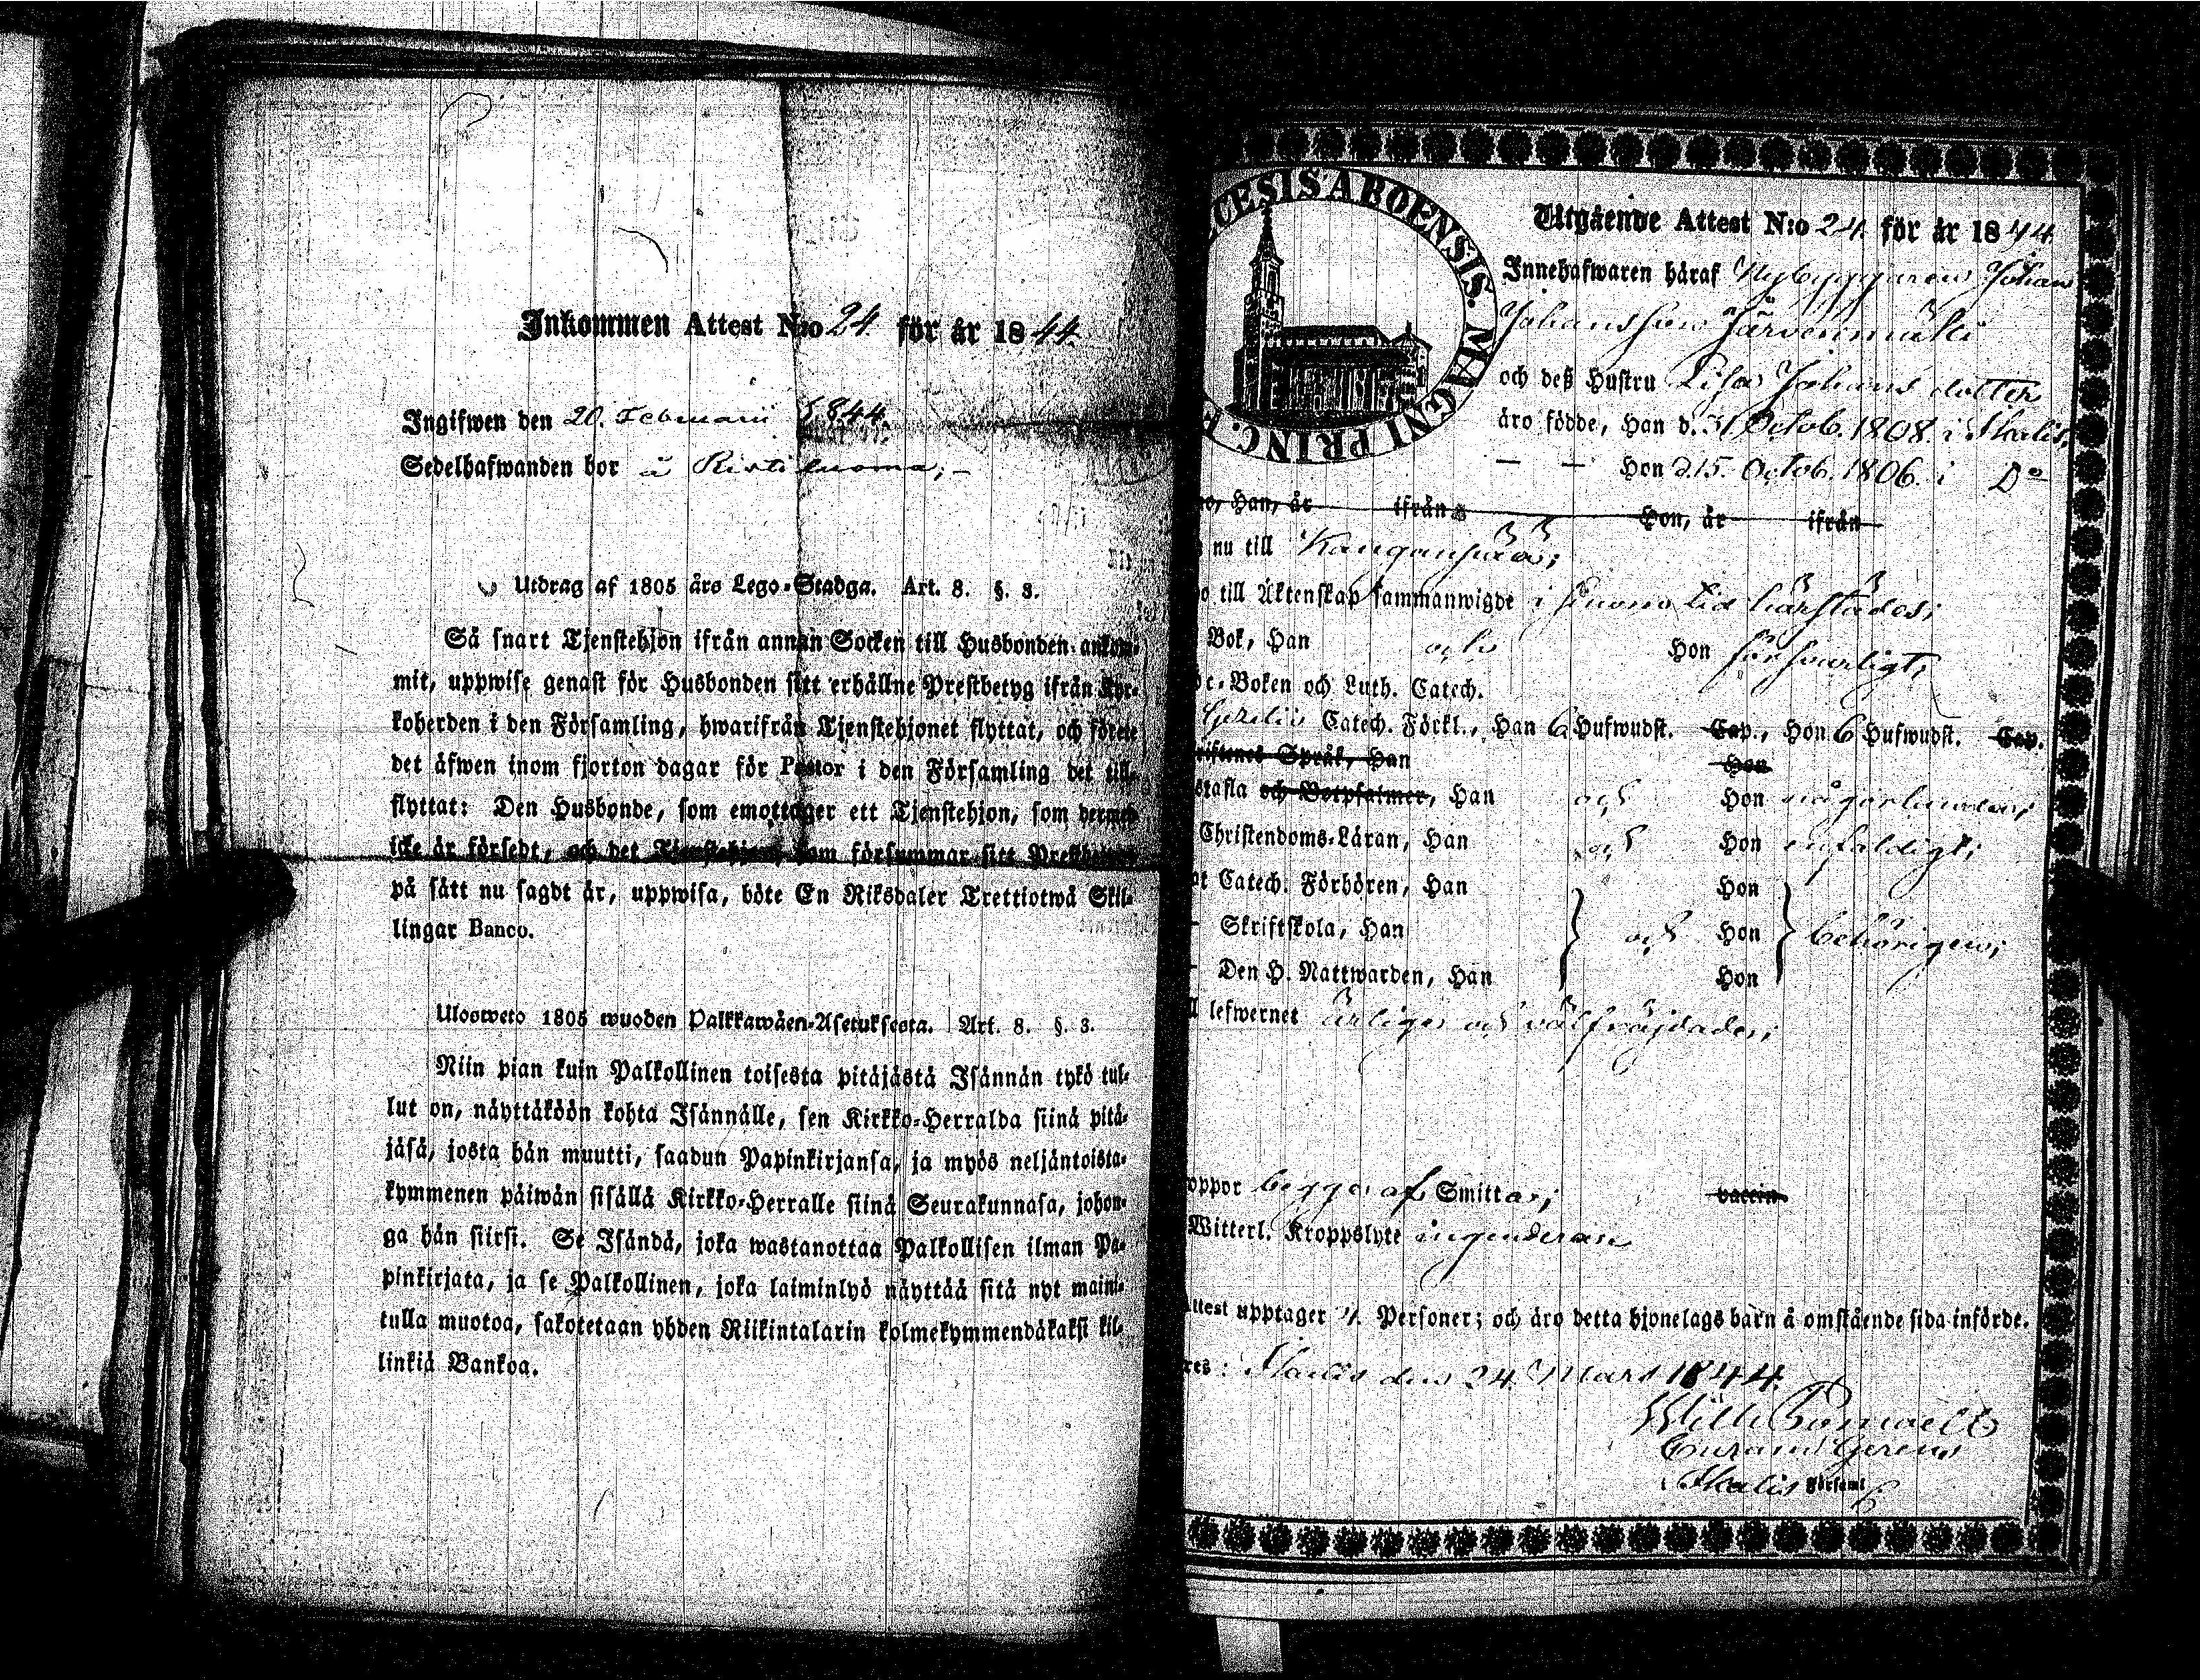 Inkommen Attest N:o 24. för år 1844.
Ingifwen den 20. Februarii 1844.
Sedelhafwanden bor å Ristiluoma;
Utdrag af 1805 års Lego-Stadga. Art. 8. §. 3.
Så snart Tjenstehjon ifrån annan Socken till Husbonden ankom-
mit, uppwise genast för Husbonden sitt erhållne Prestbetyg ifrån Kyr-
koherden i den Församling, hwarifrån Tjenstehjonet flyttat, och förete
det äfwen inom fjorton dagar för Pastor i den Församling det till-
flyttat: Den Husbonde, som emottager ett Tjenstehjon, som dermed
icke är försedt, och det Tjenstehjon, som försummar sitt Prestbetyg
på sätt nu sagdt är, uppwisa, böte En Riksdaler Trettiotwå Skil-
lingar Banco.
Ulosweto 1805 wuoden Palkkawäen-Asetuksesta. Art. 8. §. 3.
Niin pian kuin Palkollinen toisesta pitäjästä Isännän tykö tul-
lut on, näyttäköön kohta Isännälle, sen Kirkko-Herralda siinä pitä-
jäsä, josta hän muutti, saadun Papinkirjansa, ja myös neljäntoista-
kymmenen päiwän sisällä Kirkko-Herralle siinä Seurakunnasa, johon-
ga hän siirsi. Se Isändä, joka wastanottaa Palkollisen ilman Pa-
pinkirjata, ja se Palkollinen, joka laiminlyö näyttää sitä nyt maini-
tulla muotoa, sakotetaan yhden Riikintalarin kolmekymmendäkaksi kil-
linkiä Bankoa.
CESIS ABOENSIS. MAGNI PRINC. F
Utgående Attest N:o 24. för år 1844.
Innehafwaren häraf Nybyggaren Johan
Johansson Järvenmäki
och deß Hustru Lisa Johansdotter
äro födde, Han d. 31 Octob. 1808. i Ikalis,
— — Hon d. 15. Octob. 1806. i Do
Han, år ifrån Hon, år ifrån
nu till
till Äktenskap sammanwigde i sinom tid härstädes;
Bok, Han och Hon försvarligt;
Boken och Luth. Catech.
Catech. Förkl., Han 6 Hufwudst. Cap., Hon 6 Hufwudst. Cap.
Språk, Han Hon
tafla och Botpsalmer, Han och Hon någorlunda;
Christendoms-Läran, Han och Hon enfaldigt;
Catech. Förhören, Han Hon
Skriftskola, Han och Hon behörigen;
Den H. Nattwarden, Han Hon
lefwernet ärlige och välfräjdade;
koppor begge af Smitta; vaccin
Witterl. Kroppslyte ingendera
Attest upptager 4. Personer; och äro detta hjonelags barn å omstående sida införde.
Ikalis den 24. Mars 1844.
Curam Gerens
i Ikalis Församl